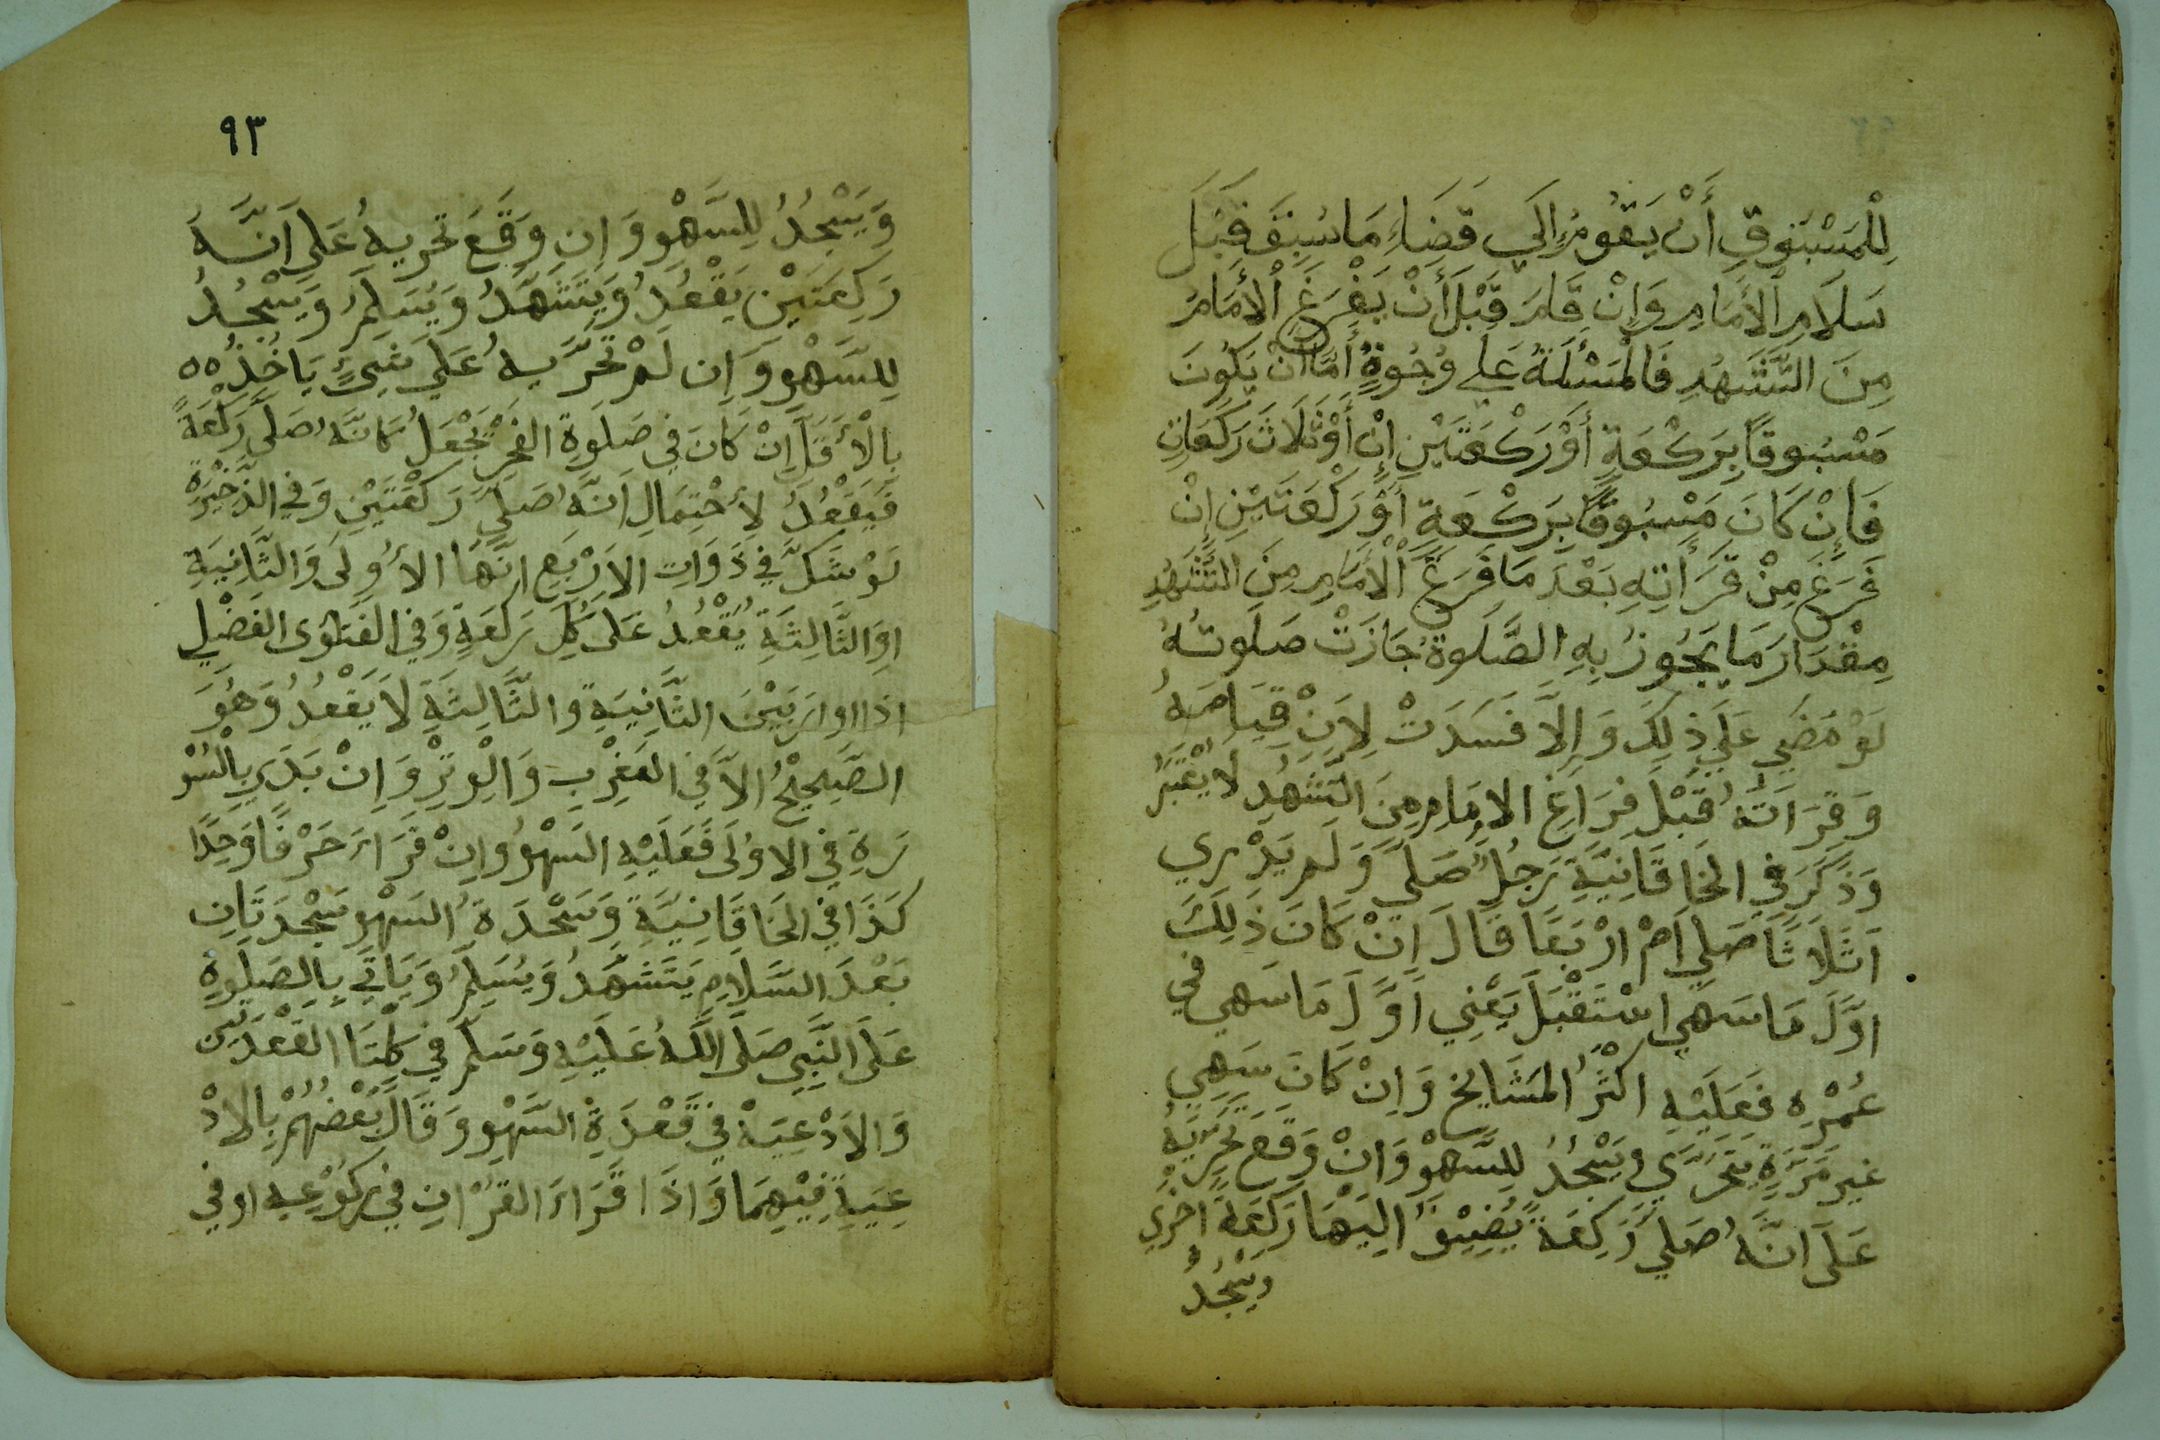 لِلْمَسْبُوقِ أَنْ يَقُومَ إِلَي قَضَاءِ مَا سُبِقَ قَبْلَ
سَلَامِ الْأِمَامِ وَإِنْ قَامَ قَبْلَ أَنْ يَفْرَغَ الْأِمَامُ
مِنَ التَّشَهُّدِ فَالْمَسْئَلَةُ عَلَي وُجُوهٍ أَمَّا أَنْ يَكُونَ
مَسْبُوقًا بِرَكْعَةٍ أَوْ رَكْعَتَيْنِ إِنْ أَوْ ثَلَاثَ رَكَعَاتٍ
فَإِنْ كَانَ مَسْبُوقًا بِرَكْعَةٍ أَوْ رَكْعَتَيْنِ إِنْ
فَرَغَ مِنْ قِرَأَتِهِ بَعْدَ مَا فَرَغَ الْأِمَامِ مِنَ التَّشَهُّدِ
مِقْدَارَ مَا يَجُوزُ بِهِ الصَّلَوةُ جَازَتْ صَلَوتُهُ
لَوْ مَضَي عَلَي ذٰلِكَ وَإِلَّا فَسَدَتْ لِاَنْ قِيَامَهُ
وَقِرَاَتَهُ قَبْلَ فِرَاغِ الاِمَامِ مِنَ التَّشَهُّدِ لَا يُعْتَبَرُ
وَذَكَرَ فِي الخَاقَانِيَّةِ رَجُلٌ صَلَّي وَلَم يَدْرِي
اَثَلَاثًا صَلَّي اَمْ اَرْبَعًا قَالَ اِنْ كَانَ ذٰلِكَ
اَوَّلَ مَا سَهِي اسْتَقْبَلَ يَعْنِي اَوَّلَ مَا سَهِي فِي
عُمْرِهِ فَعَلَيْهِ اكْثَرُ المَشَايِخِ وَاِنْ كَانَ سَهِي
غَيْرَ مَرَّةٍ يَتَحَرَّي وَيَسْجُدُ لِلسَّهْوِ وَانْ وَقَعَ تَحَرِّيَهُ
عَلَى انَّهُ صَلَّي رَكْعَةً يُضِيْفُ الَيْهَا رَكْعَةً اخْرَي
وَيَسْجُدُ
٩٣
وَيَسْجُدُ لِلسَّهْوِ وَاِنِ وَقَعَ تحريهُ عَلَى اَنَّهُ
رَكِعَتَيْنِ يَقْعُدُ وَيَتَشَهَّدُ وَيُسَلِّمُ وَيَسْجُدُ
لِلسَّهْوِ وَاِن لَمْ تَحَرَّيهُ عَلَي شَيْءٍ يَاخُذُ ٥٥
بِالْأَقَلِّ اِنْ كَانَ فِي صَلَوةِ الفَجْرِ يَجْعَلُ كَانَّهُ صَلَّي رَكْعَةً
فَيَقْعُدُ لِأحْتِمَالِ اَنَّهُ صَلَّي رَكْعَتَيْنِ وَفِي الذَّخِيْرَةِ
لَوْ شَكَّ فِي ذَوَاتِ الاَرْبَعِ انَّهَا الأُوْلَى وَالثَّانِيَةِ
اوِالثَّالِثَةِ يُقْعُدُ عَلَى كُلِّ رَكْعَةٍ وَفِي الفَتَاوَى الفَضْلِي
اذا اوامربَيْنَ الثَّانِيَةِ وَالثَّالِثَةِ لَا يَقْعُدُ وَهُوَ
الصَّحِيْحُ الاَّ فِي المَغْرِبِ وَالْوِتْرِ وَاِنْ بَدَى بِالْسُوْ
رَةِ فِي الاوُلَى فَعَلَيْهِ السَّهْوُ وَاِنْ قَرَاءَ حَرْفًا وَحِدًا
كَذَا فِي الخَاقَانِيَّةِ وَسَجْدَةُ السَهْوِ سَجْدَتَانِ
بَعْدَ السَّلَامِ يَتَشَهَّدُ وَيُسَلِّمُ وَيَاتَي بِالصَلَوةِ
عَلَى النَّبِيِ صَلَّى اللهُ عَلَيْهِ وَسَلَّمَ فِي كِلْتَا القَعْدَتَيْنِ
وَالاَدْعِيَةْ فِي قَعْدَةِ السَّهْوِ وَقَالَ بَعْضُهُمْ بِالاَدْ
عِيَةِ فِيْهِمَا وَاذَا قَرَاءَ القُرْانِ فِي رَكُوْعِهِ اوفي